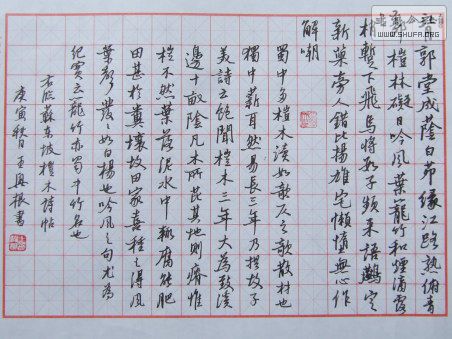 背郭堂成蔭白茆緣江路熟俯青
郊榿林礙日吟風葉籠竹和煙滴露
梢暫下飛烏將數子頻來語鷰定
新巢旁人錯比揚雄宅懶惰無心作
解嘲
蜀中多榿木讀如欹仄之欹散材也
獨中薪耳然易長三年乃拱故子
美詩云飽聞榿木三年大為致溪
邊十畝陰凡木所芘其地則瘠惟
榿不然葉落泥水中輒腐能肥
田甚於糞壤故田家喜種之得風
葉聲發發如白楊也吟風之句尤為
紀實云籠竹亦蜀中竹名也
右臨蘇東坡榿木詩帖
庚寅秋日王振書
WWW.SHUFA.ORG